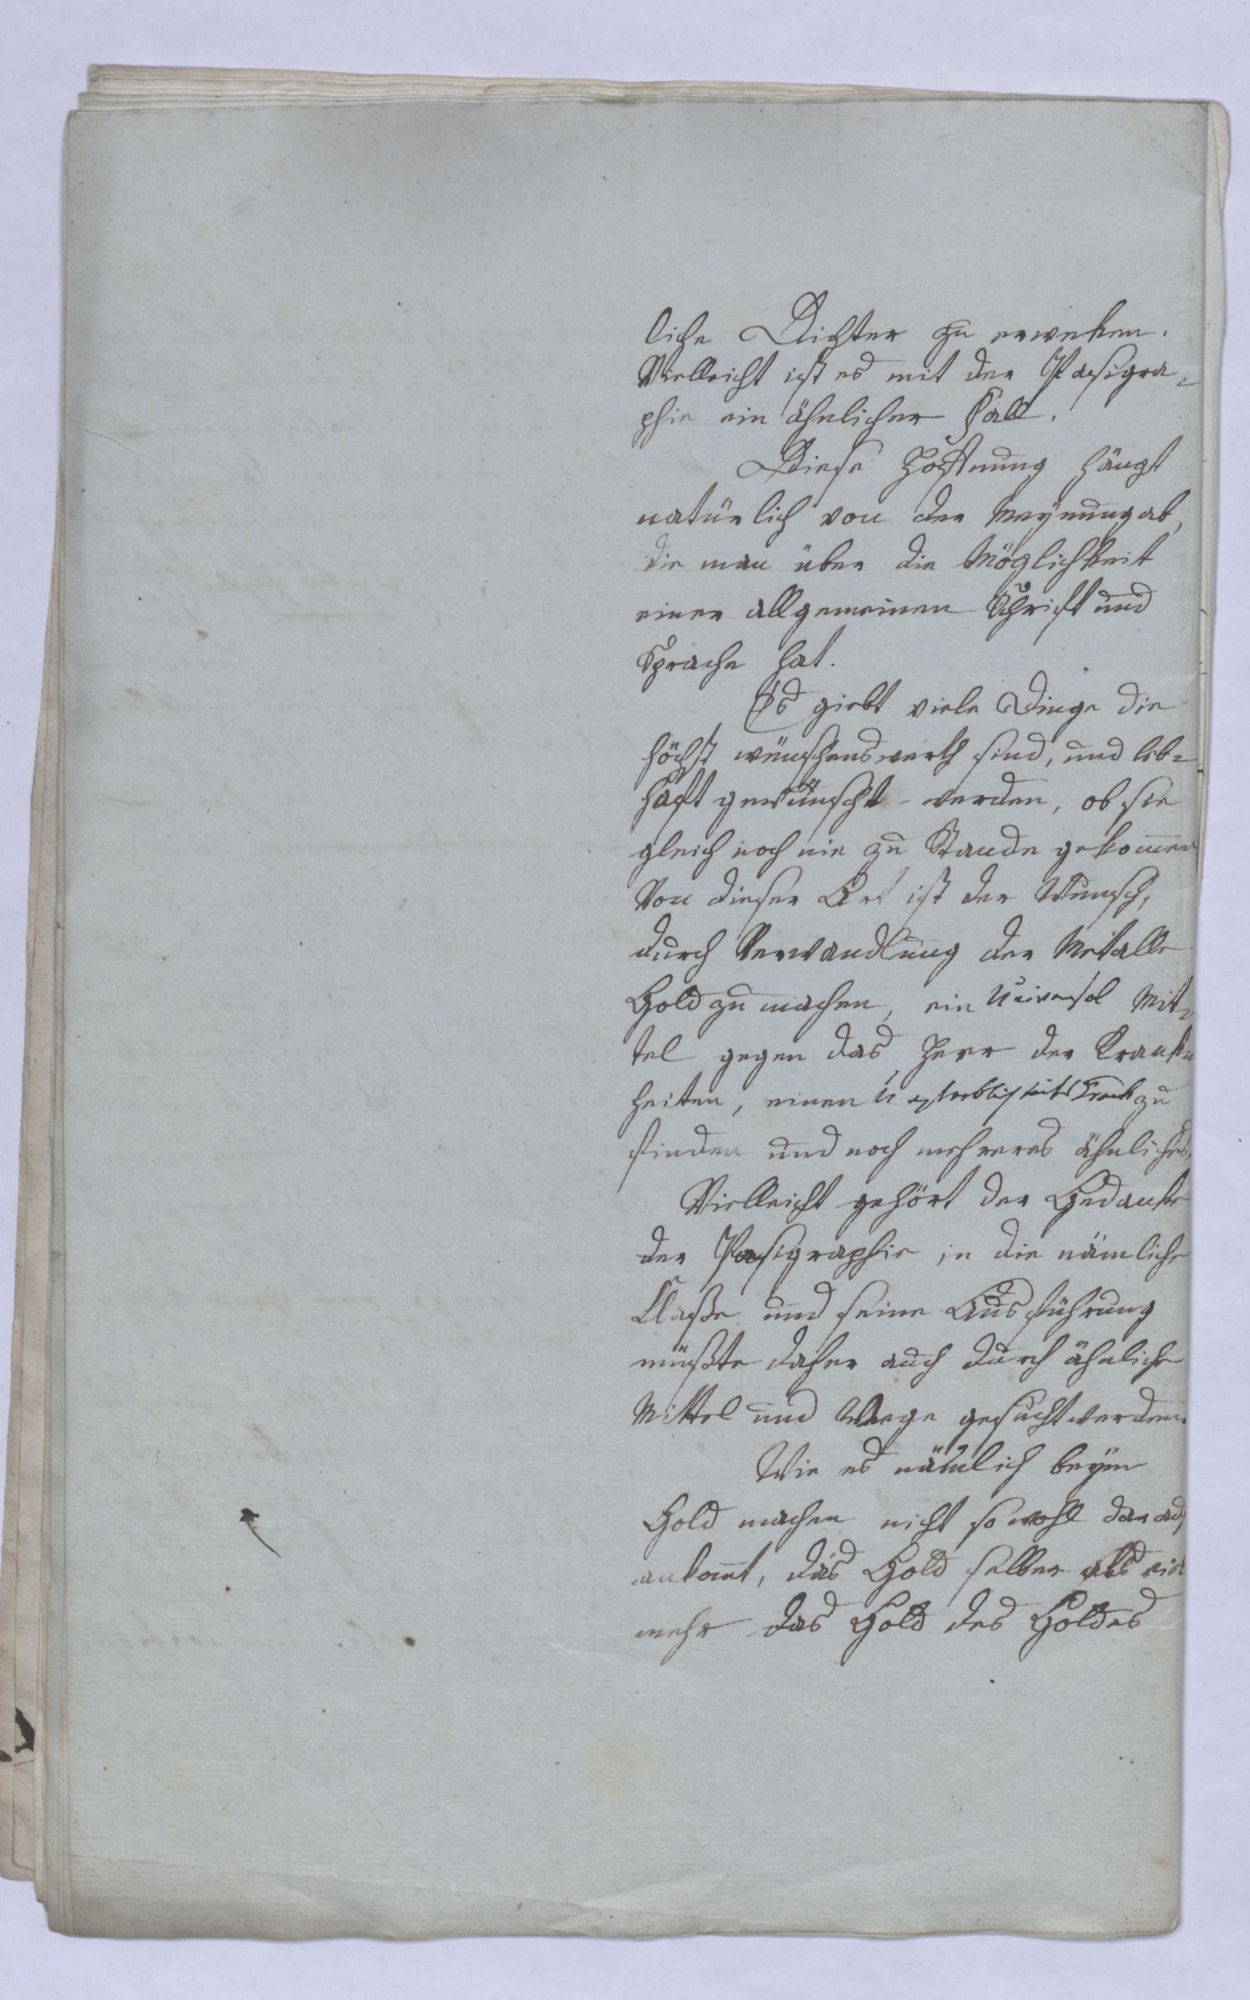 liche Dichter zu erweken.
Vielleicht ist es mit der Pasigra-
phie ein ähnlicher Fall.
Diese Hoffnung hängt
natürlich von der Meynung ab,
die man über die Möglichkeit
einer allgemeinen Schrift und
Sprache hat.
Es giebt viele Dinge die
höchst wünschenswerth sind, und leb-
haft gewünscht werden, ob sie
gleich noch nie zu Stande gekommen
Von dieser Art ist der Wunsch,
durch Verwandlung der Metalle
Gold zu machen, ein Universal Mit-
tel gegen das Heer der Krank-
heiten, einen Unsterblichkeits Trank zu
finden und noch mehreres ähnliches.
Vielleicht gehört der Gedanke
der Pasigraphie in die nämliche
Claße und seine Ausführung
müßte daher auch durch ähnliche
Mittel und Wege gesucht werden.
Wie es nämlich beym
Gold machen nicht so wohl darauf
ankomt, das Gold selber als viel
mehr das Gold des Goldes